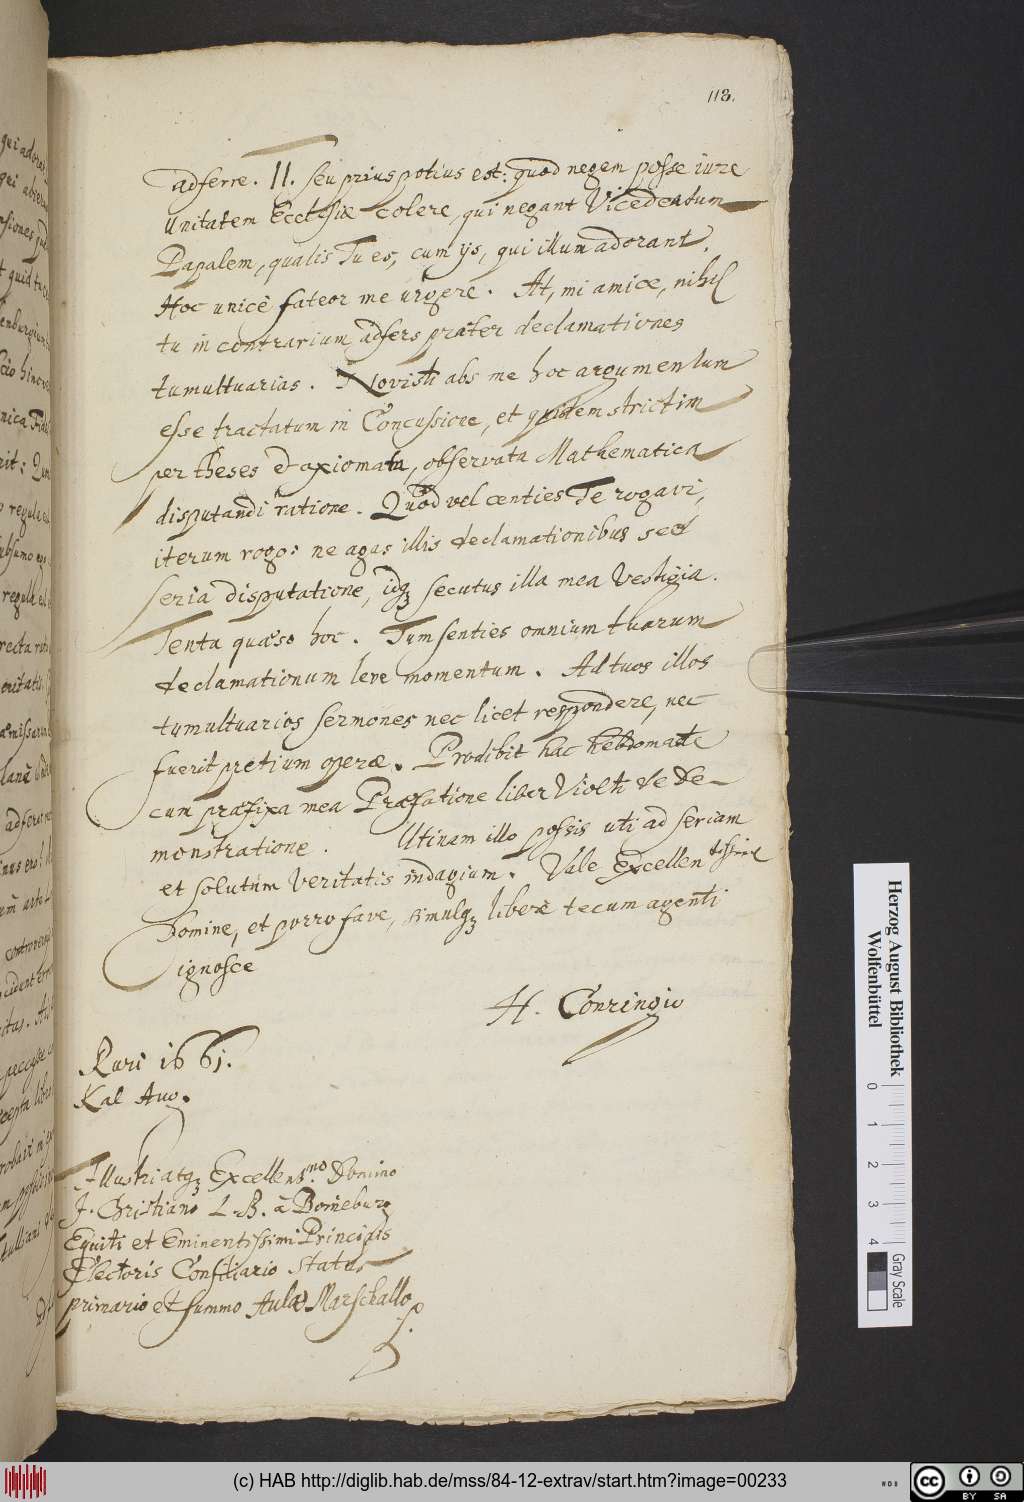 118.
adferre. II. seu prius potius est: quod negem posse iure
Unitatem Ecclesiæ colere, qui negant Vicedeatum
Papalem, qualis Tu es, cum ijs, qui illum adorant.
Hoc unicè fateor me urgere. At, mi amice, nihil
tu in contrarium adfers præter declamationes
tumultuarias. Novisti abs me hoc argumentum
esse tractatum in Concussione, et quidem strictim
per theses & axiomata, observata Mathematica
disputandi ratione. Quod vel centies Te rogavi,
iterum rogo: ne agas illis declamationibus sed
seria disputatione, idq3 secutus illa mea Vestigia.
Tenta quæso hoc. Tum senties omnium tuarum
declamationum leve momentum. Ad tuos illos
tumultuarios sermones nec licet respondere, nec
fuerit pretium operæ. Prodibit hac hebdomade
cum præfixa mea Præfatione liber Violti de De-
monstratione. Utinam illo possis uti ad seriam
et solutum Veritatis indagium. Vale Excellentissime
Domine, et porro fave, simulq3 liberè tecum agenti
ignosce
H. Conringio
Ruri 1661.
Kal Aug.
Illustri atq3 Excellentsno. Domino
J. Christiano L. B. à Boineburg
Equiti et Eminentissimi Principis
Electoris Consiliario Status
primario et summo Aulæ Marschallo
qui adora
regula
Herzog August Bibliothek
Wolfenbüttel
0 1 2 3 4
Gray Scale
(c) HAB http://diglib.hab.de/mss/84-12-extrav/start.htm?image=00233
cc BY SA